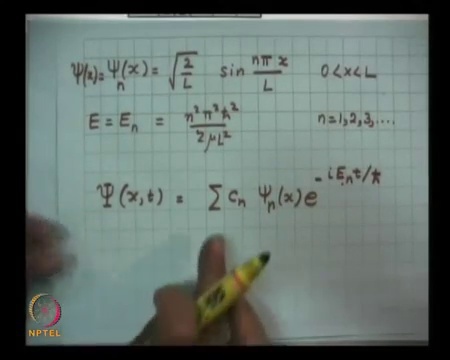 ψ(x) = ψₙ(x) = √(2/L) sin nπx/L 0 < x < L
E = Eₙ = n²π²ħ²/2μL² n = 1, 2, 3, ....
Ψ(x,t) = Σ cₙ ψₙ(x) e^(-iEₙt/ħ)
NPTEL